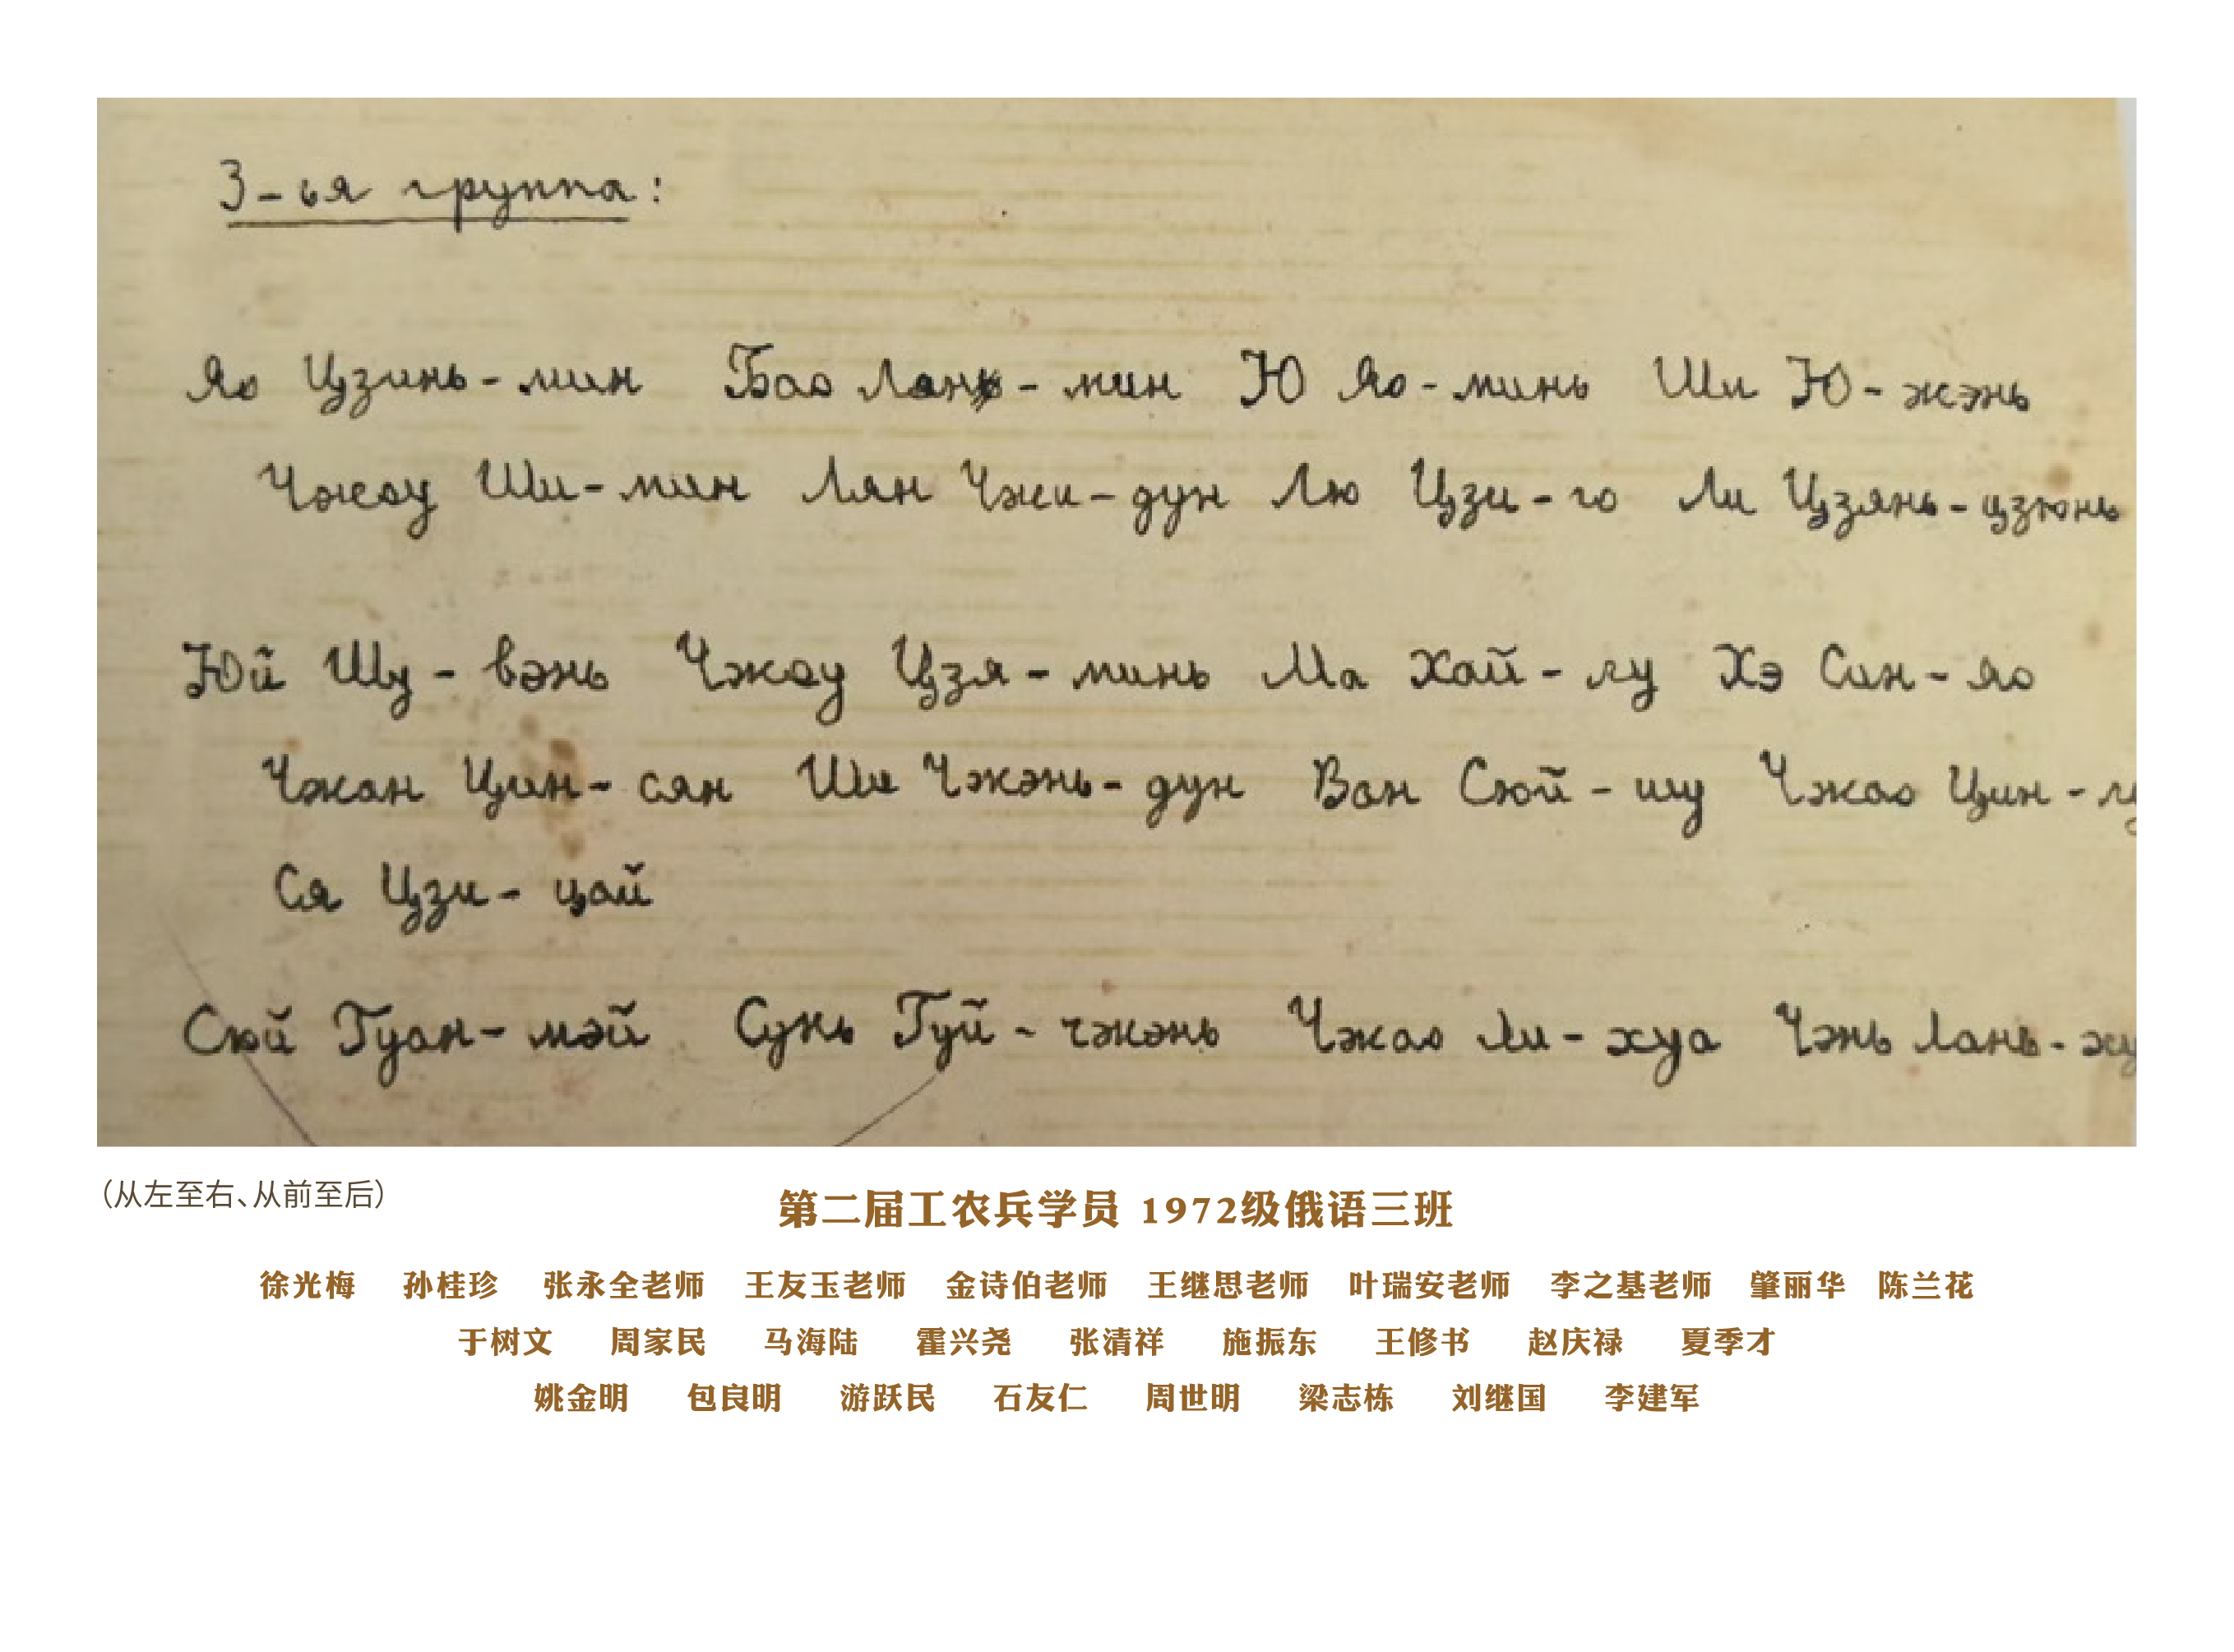 3-ья группа:
Яо Цзинь-мин Бао Лян-мин Ю Яо-минь Ши Ю-жэнь
Чжоу Ши-мин Лян Чжи-дун Лю Цзи-го Ли Цзянь-цзюнь
Юй Шу-вэнь Чжоу Цзя-минь Ма Хай-лу Хэ Син-яо
Чжан Цин-сян Ши Чжэнь-дун Ван Сюй-шу Чжао Цин-лу
Ся Цзи-цай
Сюй Гуан-мэй Сунь Гуй-чжэнь Чжао Ли-хуа Чэнь Лань-ху
(从左至右、从前至后)
第二届工农兵学员 1972级俄语三班
徐光梅 孙桂珍 张永全老师 王友玉老师 金诗伯老师 王继思老师 叶瑞安老师 李之基老师 肇丽华 陈兰花
于树文 周家民 马海陆 霍兴尧 张清祥 施振东 王修书 赵庆禄 夏季才
姚金明 包良明 游跃民 石友仁 周世明 梁志栋 刘继国 李建军